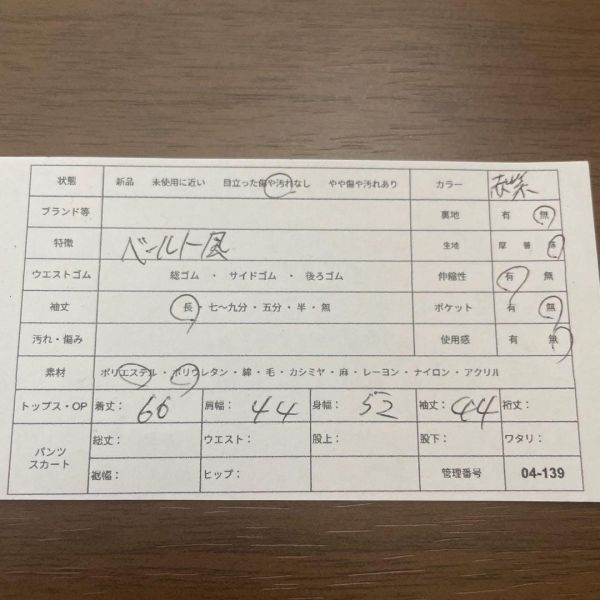 状態 新品 未使用に近い 目立った傷や汚れなし やや傷や汚れあり カラー 赤系
ブランド等 裏地 有 無
特徴 ベールトー風 生地 厚 普 薄
ウエストゴム 総ゴム ・ サイドゴム ・ 後ろゴム 伸縮性 有 無
袖丈 長・七〜九分・五分・半・無 ポケット 有 無
汚れ・傷み 使用感 有 無
素材 ポリエステル・ポリウレタン・綿・毛・カシミヤ・麻・レーヨン・ナイロン・アクリル
トップス・OP 着丈: 66 肩幅: 44 身幅: 52 袖丈: 44 裄丈:
パンツ スカート 総丈: ウエスト: 股上: 股下: ワタリ:
裾幅: ヒップ: 管理番号 04-139